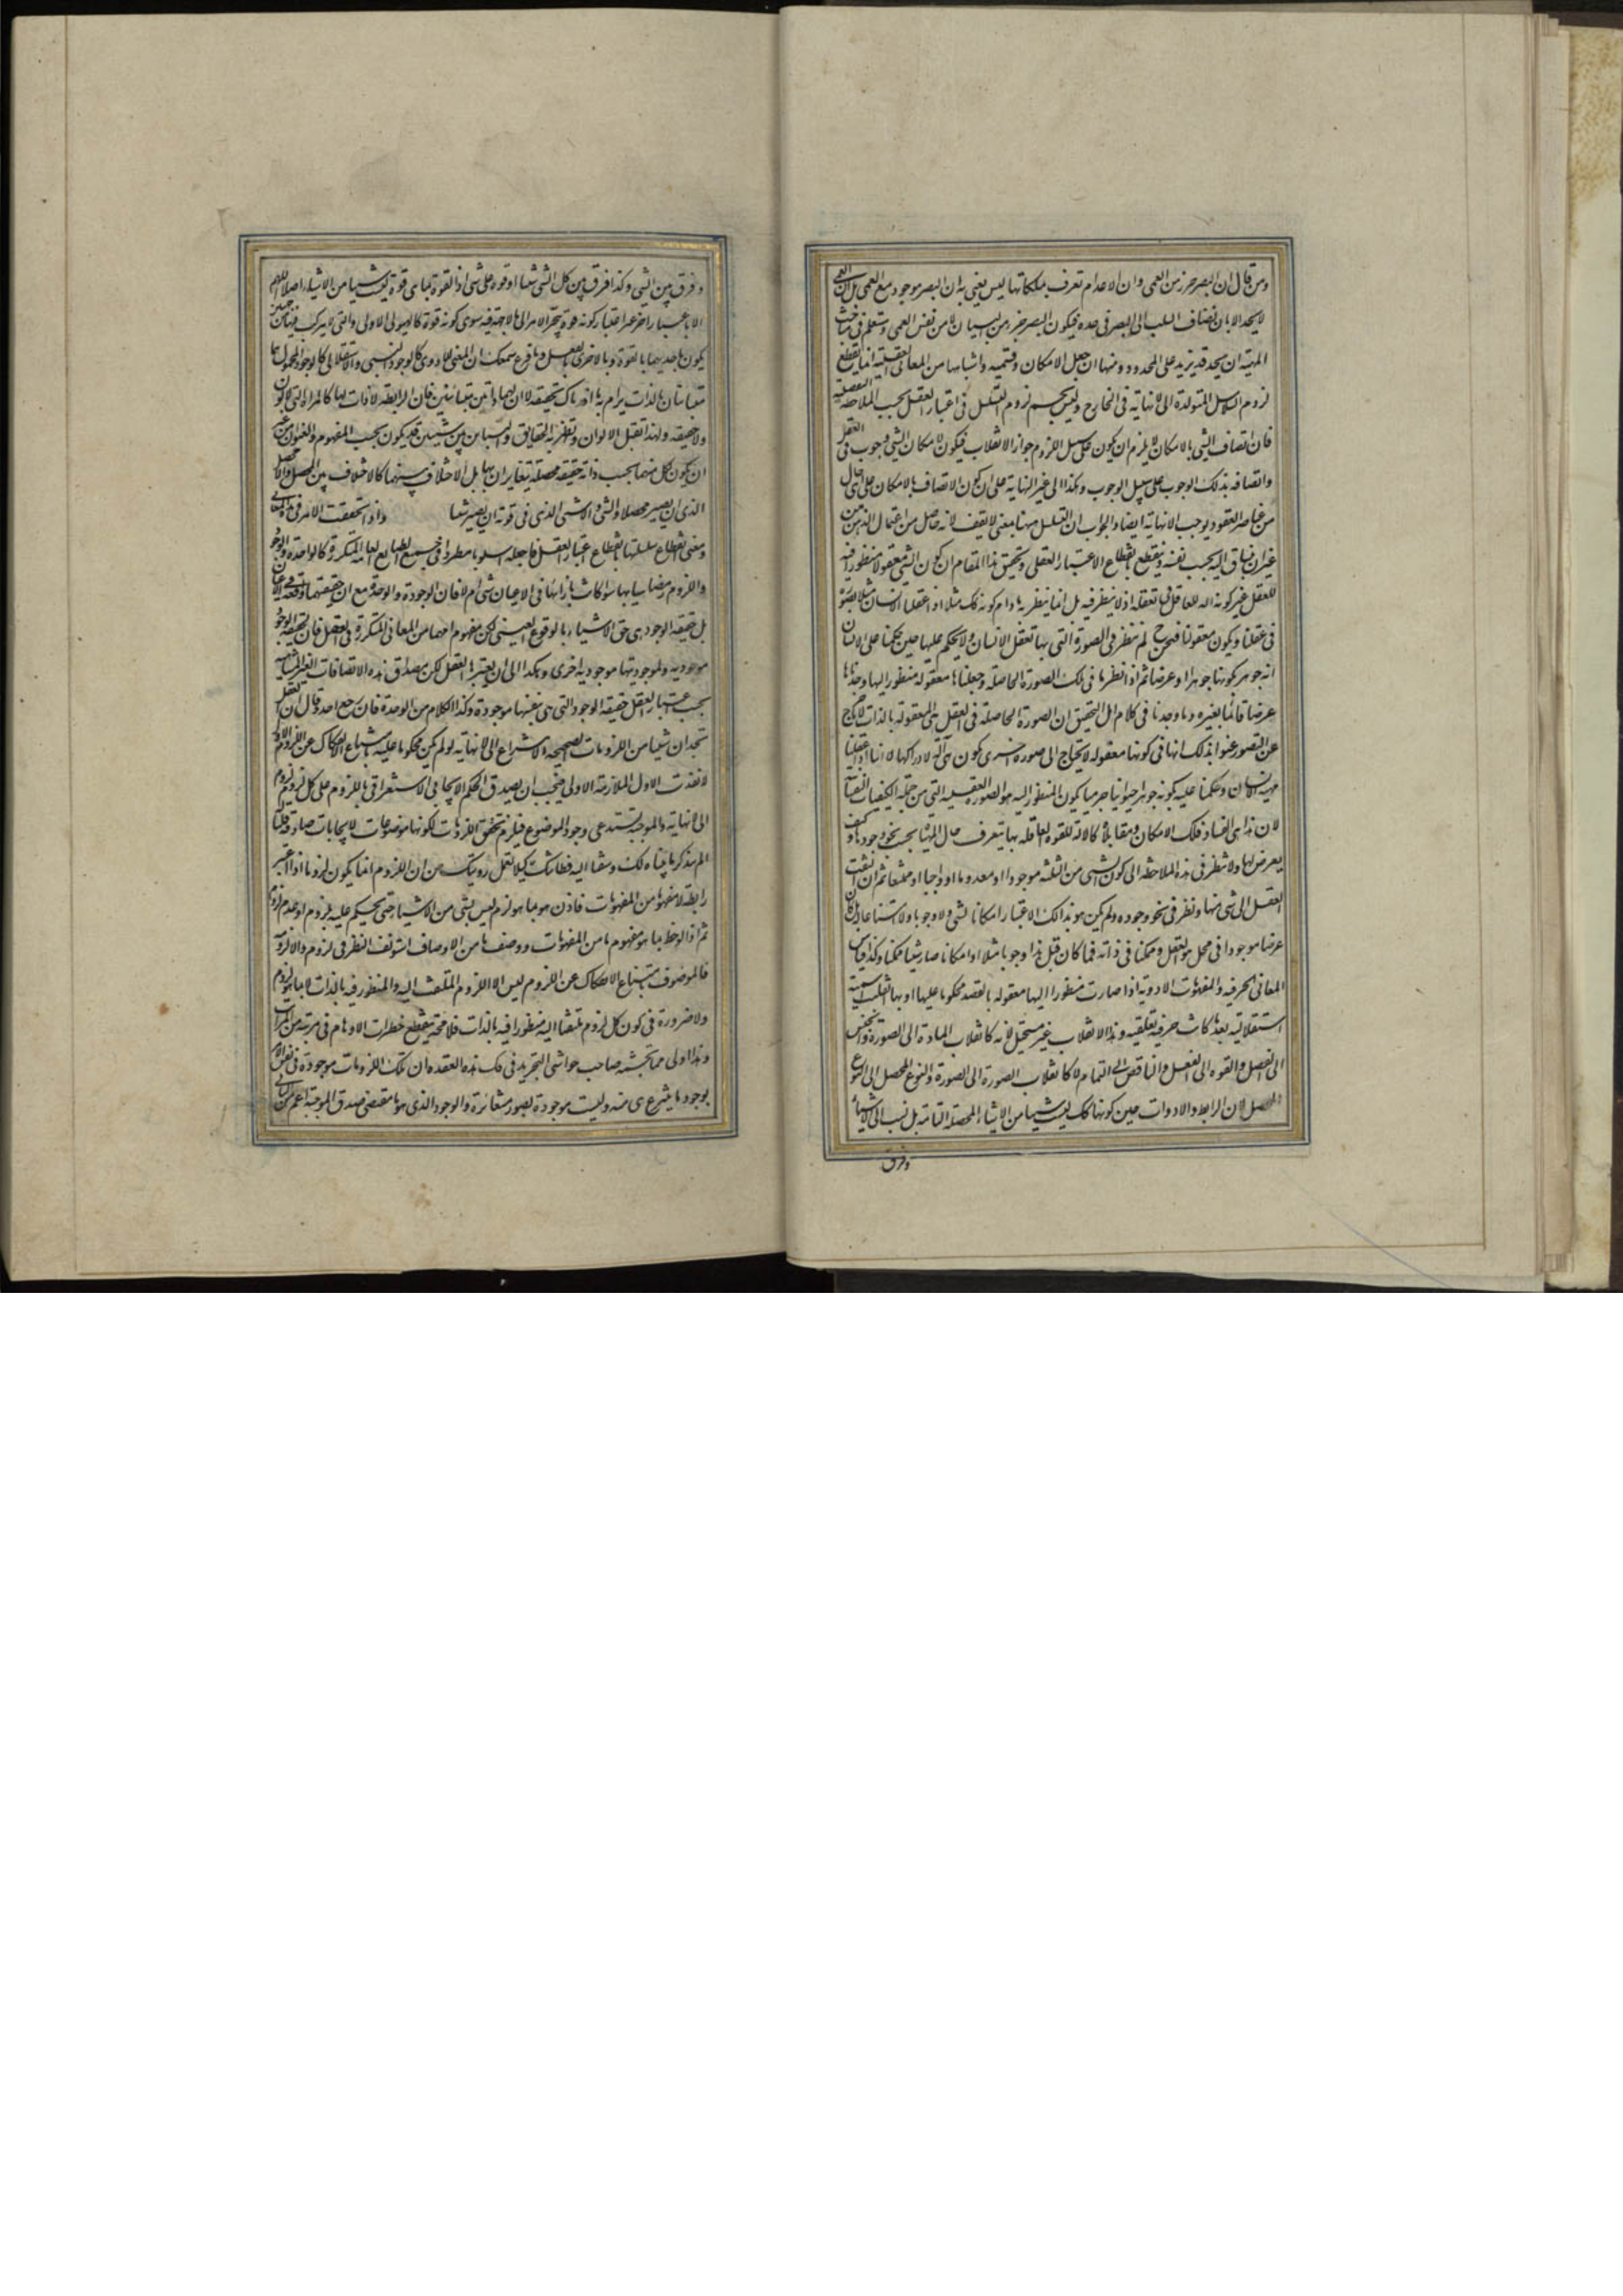 ومن قال ان البصر جزء من العمى وان الاعدام تعرف بملكاتها ليس يعنى به ان البصر موجود مع العمى بل ان العمى
لا يحد الا بان يضاف السلب الى البصر فى حده فيكون البصر جزء من البيان لا من نفس العمى وستعلم فى مباحث
المهية ان الحد قد يزيد على المحدود ومنها ان جعل الامكان وقسيميه واشباهها من المعانى العقلية انما يقطع
لزوم السلاسل المتولدة الى لا نهاية فى الخارج وليس يحسم لزوم التسلسل فى اعتبار العقل بحسب الملاحظة التفصيلية
فان اتصاف الشى بالامكان لا يلزم ان يكون على سبيل اللزوم جواز الانقلاب فيكون لامكان الشى وجوب فى العقل
واتصافه بذلك الوجوب على سبيل الوجوب وهكذا الى غير النهاية على ان كون الاتصاف بالامكان على اى حال
من عناصر العقود يوجب اللانهاية ايضا والجواب ان التسلسل ههنا بمعنى لا يقف لانه حاصل من اعتمال الذهن من
غير ان ينساق اليه بحسب نفسه فينقطع بانقطاع الاعتبار العقلى وتحقيق هذا المقام ان كون الشى معقولا منظورا فيه
للعقل غير كونه الة للعاقل فى تعقله اذ لا ينظر فيه بل انما ينظر به مادام كونه كك مثلا اذا عقلنا الانسان مثلا بصورة
فى عقلنا ويكون معقولنا فنحن ح لم ننظر فى الصورة التى بها تعقل الانسان ولا يحكم عليها حين حكمنا على الانسان
انه جوهر بكونها جوهرا او عرضا ثم اذا نظرنا فى تلك الصورة الحاصلة وجعلناها معقولة منظورا اليها وجدناها
عرضا قائما بغيره وما وجدنا فى كلام اهل التحقيق ان الصورة الحاصلة فى العقل هى المعقولة بالذات لا الخارج
عن التصور عنوا بذلك انها فى كونها معقولة لا يحتاج الى صورة اخرى يكون هى آلة لادراكها لا انا اذا عقلنا
مهية الانسان وحكمنا عليه بكونه جوهرا حيوانيا جرميا يكون المنظور اليه هو الصورة العقلية التى من جملة الكيفيات النفسانية
لان هذا بين الفساد فكك الامكان ومقابلاه كالآلة للقوة العاقلة بها يتعرف حال المهيات بحسب نحو وجودها وكيف
يعرض لها ولا ينظر فى هذه الملاحظة الى كون شى من الثلثة موجودا او معدوما او واجبا او ممتنعا ثم ان التفت
العقل الى شى منها ونظر فى نحو وجوده ولم يكن هو بذلك الاعتبار امكانا لشى ولا وجوبا ولا امتناعا بل كان
عرضا موجودا فى محل هو العقل وممكنا فى ذاته فما كان قبل هذا وجوبا مثلا او امكانا صار شيئا ممكنا وكذا قياس
المعانى الحرفية والمفهومات الادوية اذا صارت منظورا اليها معقولة بالقصد محكوما عليها او بها انقلبت اسمية
استقلالية بعد ما كانت حرفية تعلقية وهذا الانقلاب غير مستحيل لانه كانقلاب المادة الى الصورة والجنس
الى الفصل والقوة الى الفعل والناقص الى التمام لا كانقلاب الصورة الى الصورة والنوع المحصل الى النوع
المحصل لان الرابط والادوات حين كونها كك ليست شيئا من الاشياء المحصلة التامة بل نسب الى الاشياء
وفرق
وفرق بين الشى وكذا فرق بين كل الشى شيئا او قوة على شى اذ القوة بما هى قوة ليست شيئا من الاشياء اصلا اللهم
الا باعتبار اخر غير اعتبار كونه هو ينجر الامر الى ما لا جهة فيه سوى كونه قوة كالهيولى الاولى والتى لا يتركب من
يكون باحديهما بالقوة وبالاخرى بالفعل وما قرع سمعك ان المعنى الادوى كالوجود النسبى والاستقلالى كالوجود المحمولى هما
متباينان بالذات يرام به ما ادريناك تحقيقه لا ان لهما ذاتين متباينتين فان الرابطة لا ذات لها كالمرآة التى لا لون
ولا حقيقة ولهذا تقبل الالوان وتظهر به الحقايق والتباين بين شيئين قد يكون بحسب المفهوم والعنوان من غير
ان يكون لكل منهما بحسب ذاته حقيقة محصلة يتغايران بها بل الاختلاف بينهما كالاختلاف بين المحصل واللامحصل
الذى ان يصير محصلا والشى واللاشى الذى فى قوته ان يصير شيئا واذ تحققت الامر فى هذه المعانى
ومعنى انقطاع سلسلتها بانقطاع اعتبار العقل فاجعله اسلوبا مطردا فى جميع الطبايع العامة المتكررة كالوحدة والوجود
واللزوم ومضاهياتها سوا كانت بازائها فى الاعيان شى ام لا فان الوجود والوحدة مع ان حقيقتهما واقعة فى الاعيان
بل حقيقة الوجود هى حق الاشياء بالوقوع العينى لكن مفهومهما من المعانى المتكررة فى العقل فان لحقيقة الوجود
موجودية ولموجوديتها موجودية اخرى وهكذا الى ان يعتبره العقل لكن مصداق هذه الاتصافات الغير المتناهية
بحسب اعتبار العقل حقيقة الوجود التى هى بنفسها موجودة وكذا الكلام من الوحدة فان رجع احد وقال ان العقل
يجد ان شيئا من اللزومات الصحيحة الانتزاع الى لا نهاية لو لم يكن محكوما عليه بامتناع الانفكاك عن اللزوم الاول
لانفسخت الملازمة الاولى فيجب ان يصدق الحكم الايجابى الاستغراقى باللزوم على كل لزوم لزوم
الى لا نهاية والموجبة تستدعى وجود الموضوع فيلزم تحقق اللزومات لكونها موضوعات لايجابات صادقة قلنا
الم نذكر ما بيناه لك وسقنا اليه فطانتك كيلا تعمل رويتك من ان اللزوم انما يكون لزوما اذا اعتبر
رابطة لا مفهوما من المفهومات فاذن هو بما هو لزوم ليس بشى من الاشياء حتى يحكم عليه بلزوم او عدم لزوم
ثم اذا لوحظ بما هو مفهوم ما من المفهومات ووصف ما من الاوصاف استونف النظر فى لزومه واللالزومه
فالموصوف بامتناع الانفكاك عن اللزوم ليس الا اللزوم الملتفت اليه والمنظور فيه بالذات لا بما هو لزوم
ولا ضرورة فى كون كل لزوم ملتفتا اليه منظورا فيه بالذات فلا محة ينقطع خطرات الاوهام فى مرتبة من المراتب
وهذا اولى مما تجشمه صاحب حواشى التجريد فى فك هذه العقدة ان تلك اللزومات موجودة فى نفس الامر
بوجود ما ينتزع هى منه وليست موجودة بصور متغايرة والوجود الذى هو ما مقتضى صدق الموجبة اعم من الثانى